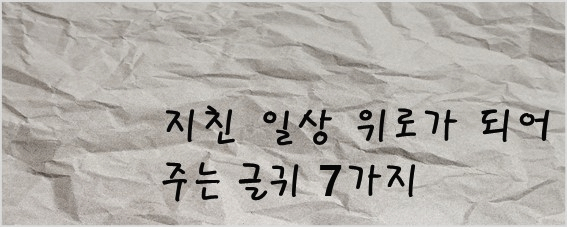 지친 일상 위로가 되어
주는 글귀 7가지